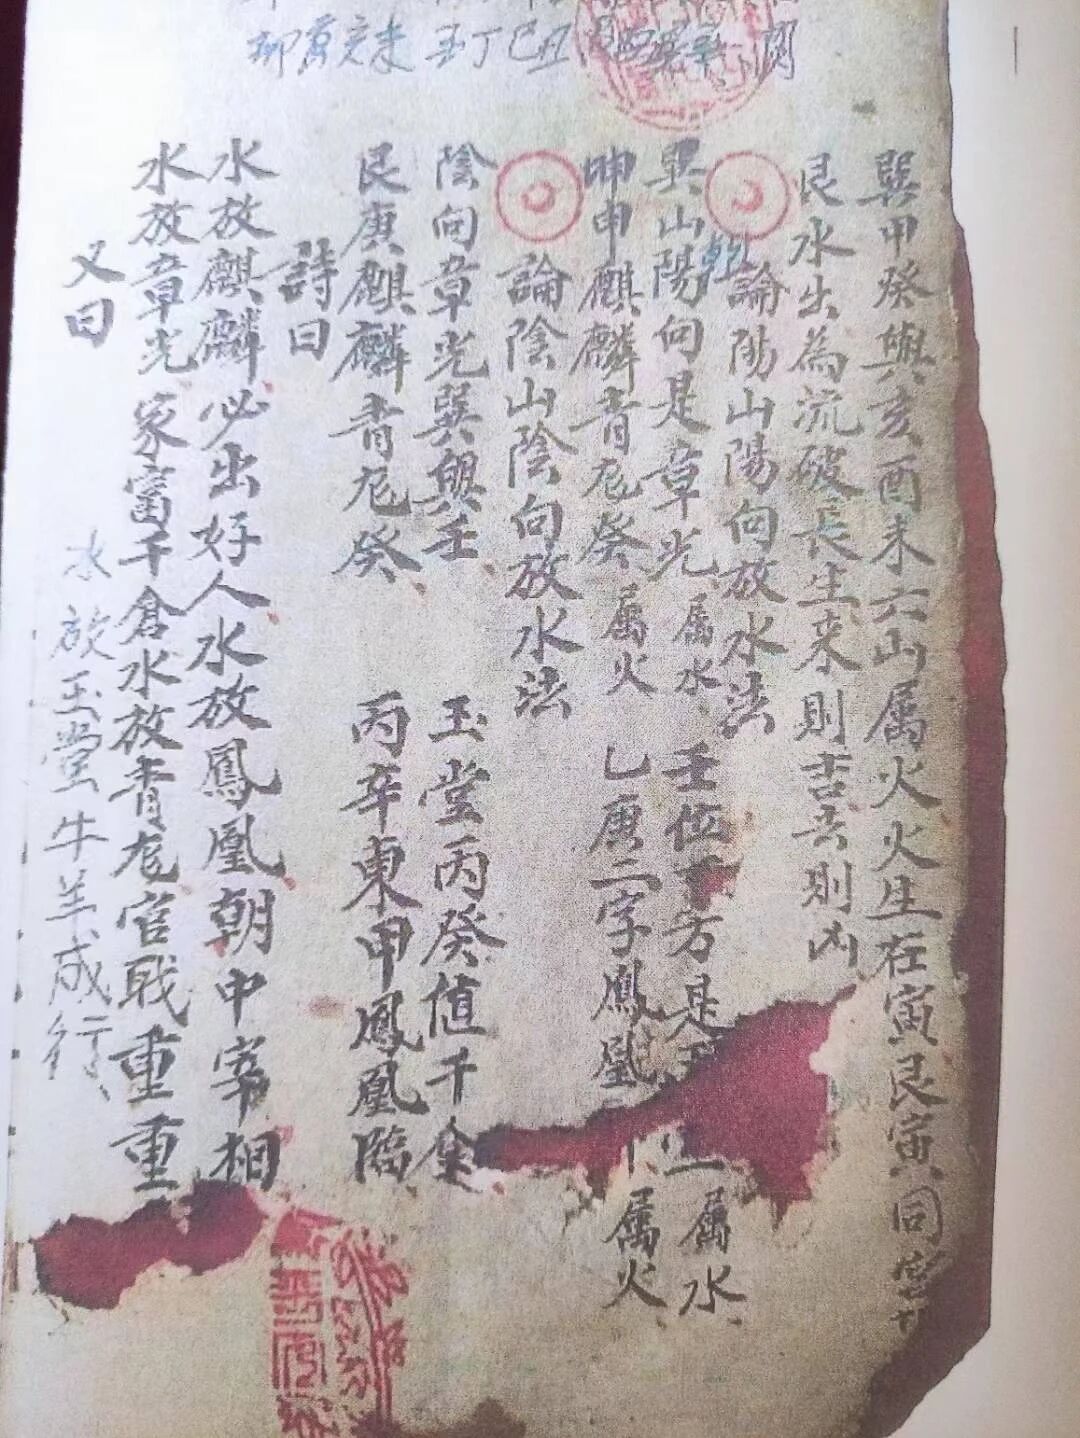 卯寅亥未 壬丁巳丑
巽甲癸與亥酉未六山属火火生在寅艮寅同宫
艮水出為流破長生来則吉去則凶
論陽山陽向放水法
朝
巽山陽向是章光 属水 壬位 方是 属水
坤申麒麟青龙癸 属火 乙庚二字鳳凰 属火
論陰山陰向放水法
陰向章光巽與壬 玉堂丙癸值千金
艮庚麒麟青龙癸 丙辛東甲鳳凰臨
詩曰
水放麒麟必出好人水放鳳凰朝中宰相
水放章光家富千倉水放青龙官戢重重
又曰
水放玉堂牛羊成行